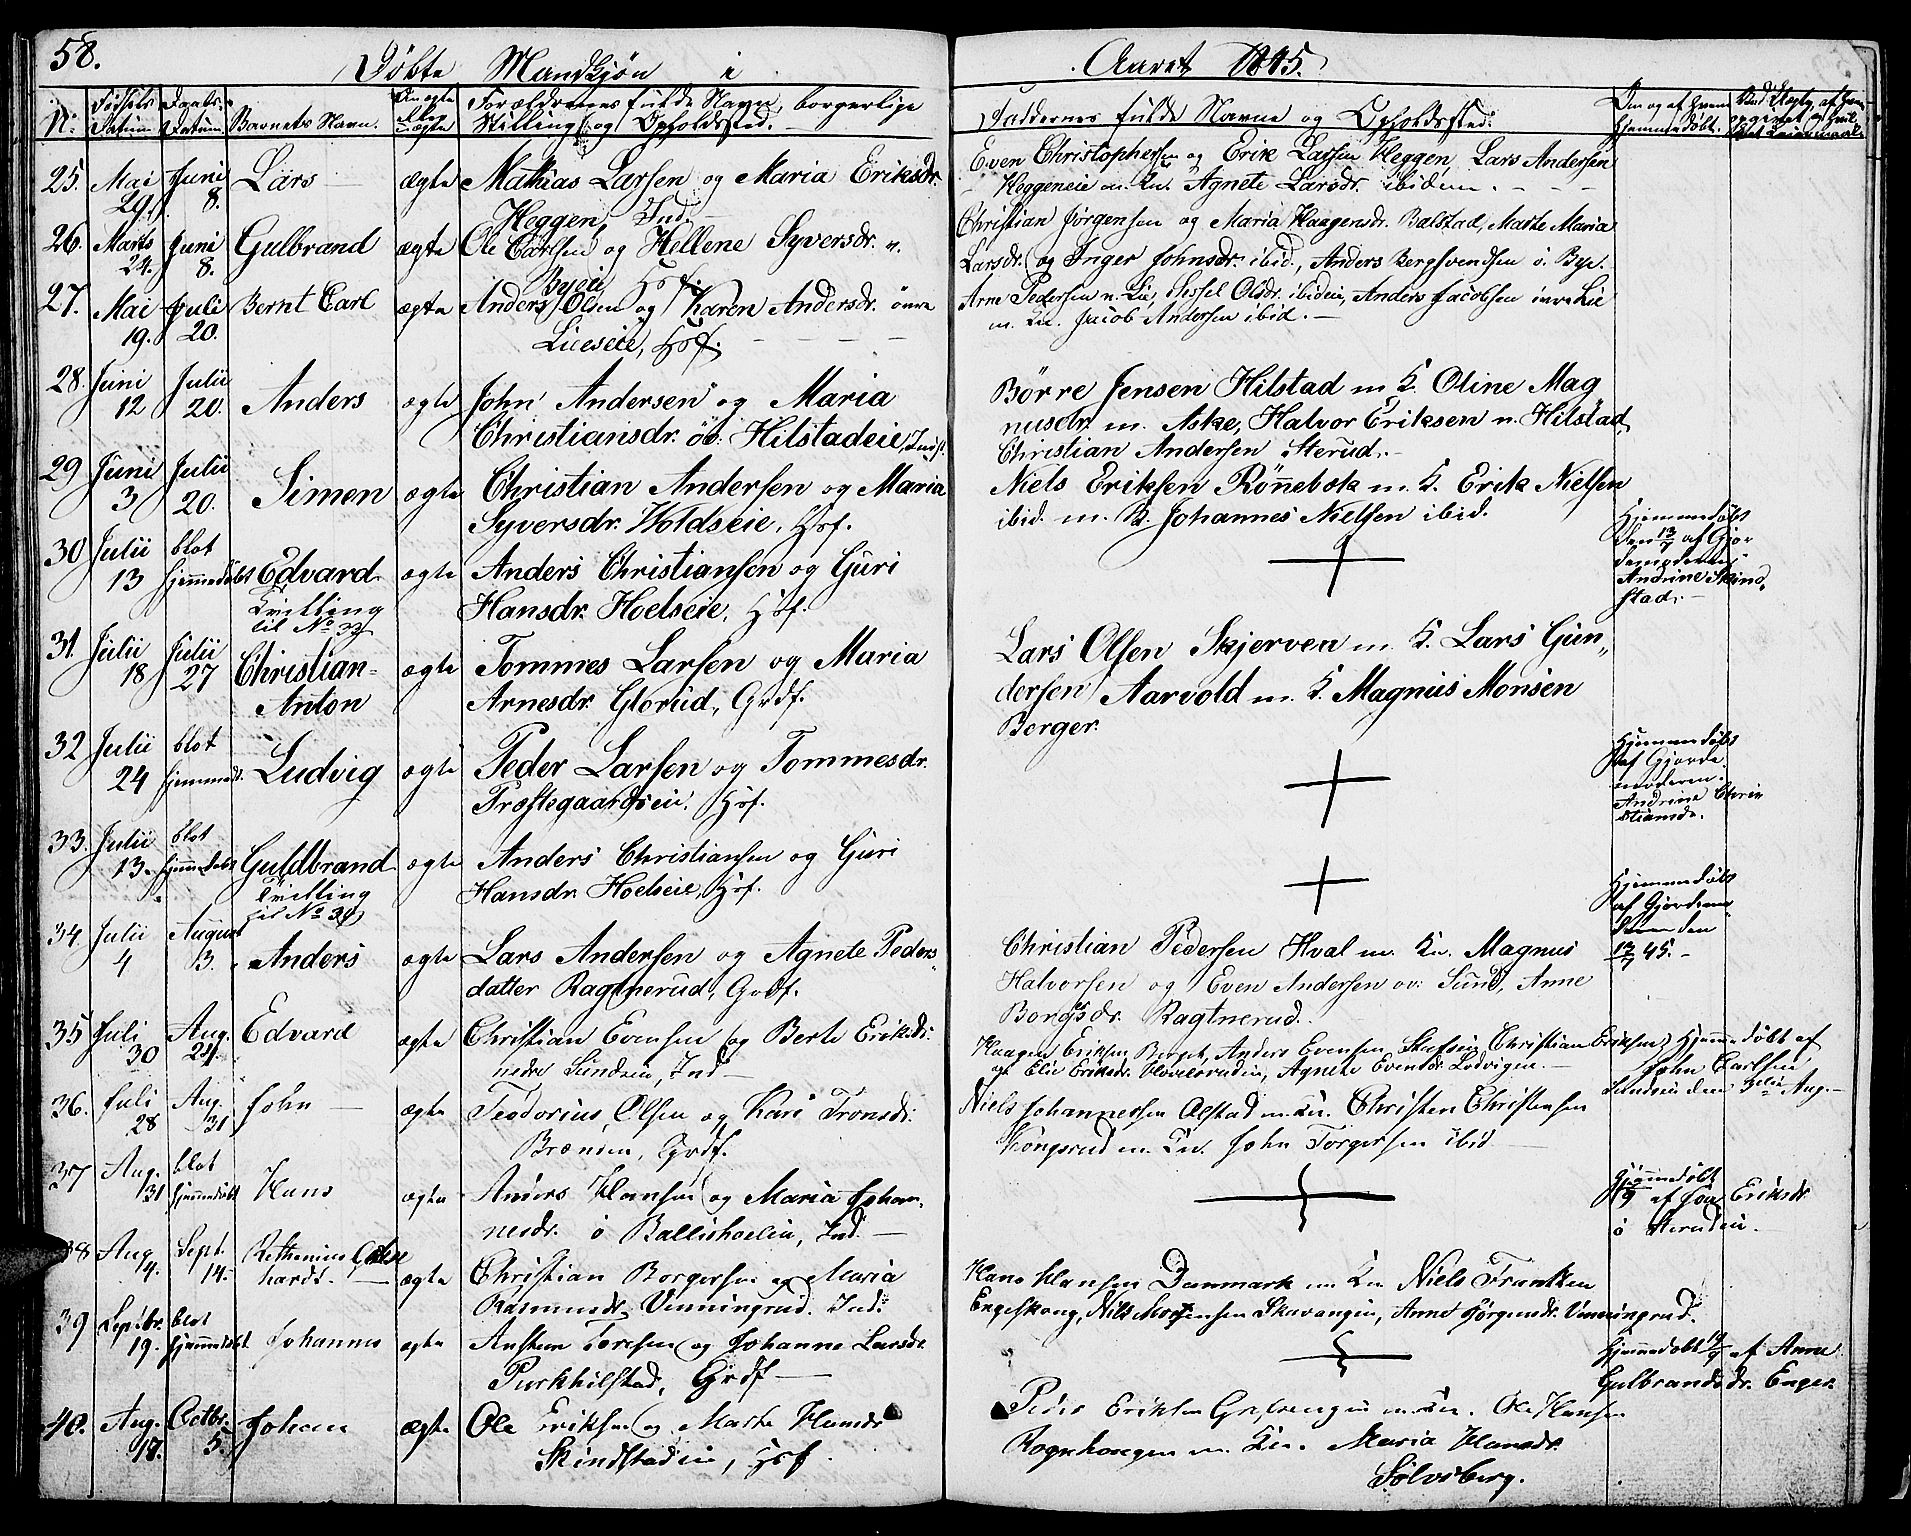 58.
Döbte Mandkjön i
Aaret 1845.
No. Födsels Datum. Daabs Datum. Barnets Navn. Om ægte eller uægte Forældrenes fulde Navne, borgerlige Stilling og Opholdssted.
Faddernes fulde Navne og Opholdssted.
Om og af hvem hjemmedöbt.
25. Mai 29. Juni 8. Lars ægte Mathias Larsen og Maria Eriksdr.
Heggen, Ind.
Even Christophersen og Erik Larsen Heggen, Lars Andersen
Heggeneie m. Kn. Agnete Larsdr. ibidem.
26. Marts 24. Juni 8. Gulbrand ægte Ole Carlsen og Hellene Syversdr. n.
Byeie Hof.
Christian Jörgensen og Maria Haagensdr. Balstad, Marthe Maria
Larsdr. og Inger Johnsdr. ibid., Anders Bergsvendsen ö. Bye.
27. Mai 19. Juli 20. Bernt Carl ægte Anders Olsen og Karen Andersdr. övre
Lieeseie, Hof.
Arne Pedersen n. Lie, Sissel Olsdr. ibideie, Anders Jacobsen övre Lie
m. Kn. Jacob Andersen ibid.
28. Juni 12 Julii 20. Anders ægte John Andersen og Maria
Christiansdr. öv: Hilstadeie, Indst.
Börre Jensen Hilstad m K. Oline Mag
nusdr. m. Aske, Halvor Eriksen n. Hilstad,
Christian Andersen Sterud.
29 Juni 3 Julii 20. Simen ægte Christian Andersen og Maria
Syversdr. Woldseie, Hof.
Niels Eriksen Rönnebek m. K. Erik Nielsen
ibid. m. K. Johannes Nielsen ibid.
30 Julii 13 blot hjemmedöbt Edvard ægte Anders Christiansen og Guri
Tvilling
til No 33
Hansdr. Hoelseie, Hof.
Hjemmedöbt
den 13/7 af Gjor
demoderen
Andrine Skind
stad.
31. Julii 18 Julii 27 Christian- ægte Tommes Larsen og Maria
Anton
Arnesdr. Glorud, Grdf.
Lars Olsen Skjerven m. K. Lars Gun„
dersen Aarvold m. K. Magnus Monsen
Berger.
32 Julii 24 blot hjemmed. Ludvig ægte Peder Larsen og Tommesdr.
Præstegaardseie, Hof.
Hjemmedöbt
af Gjorde
moderen
Andrine Chri
stiansdr.
33. Julii 13. blot hjemmedöbt Guldbrand ægte Anders Christiansen og Guri
Tvilling
til No 30
Hansdr. Hoelseie, Hof.
Hjemmedöbt
af Gjordemo
deren den
13/7 45.
34. Julii 4 August 3. Anders ægte Lars Andersen og Agnete Peders„
datter Ragtnerud, Grdf.
Christian Pedersen Hval m. Kn. Magnus
Halvorsen og Even Andersen ov: Sund, Anne
Borgesdr. Ragtnerud.
35 Juli 30 Aug. 24. Edvard ægte Christian Evensen og Berte Eriksdr.
nedre Sundeie, Ind
Haagen Eriksen Berget, Anders Evensen Christian Eriksen
og Elie Eriksdr. Agnete Evensdr. Lodvigen.
Hjemmedöbt af
John Carlsen
Sundeie den Aug.
36. Juli 28 Aug. 31. John ægte Teodorius Olsen og Kari Tronsdr.
Brænden, Grdf.
Niels Johannessen Alstad m. Kn. Christen Christensen
Kongsrud m. Kn. John Torgersen ibid.
37 Aug. 31 blot hjemmedöbt Hans ægte Anders Hansen og Maria Johan„
nesdr. ö Ballishoelen, Ind.
Hjemmedöbt
af Eriksdr.
ö Sterudeie.
38 Aug. 4. Sept. 14. ægte Christian Borgersen og Maria
Rasmusdr. Vinningrud. Ind.
Hans Hansen Danmark m Kn Niels Frantsen
Engeskoug, Nils Mortensen Skavangen, Anne Jörgensdr. Vinningrud.
39 Septbr. 19. blot hjemmedöbt Johannes ægte Austen Toresen og Johanne Larsdr.
Purkhilstad, Grdf
Hjemmedöbt 19/9 af Anne
Gulbrandsdr. Enger.
40. Aug. 17. Octbr. 5. Johan ægte Ole Eriksen og Marte Hansdr
Skindstadeie, Hof.
Peder Eriksen Grefsengen m. Kn. Ole Hansen
Rognhaugen m. Kn. Maria Hansdr.
Sölvsberg.